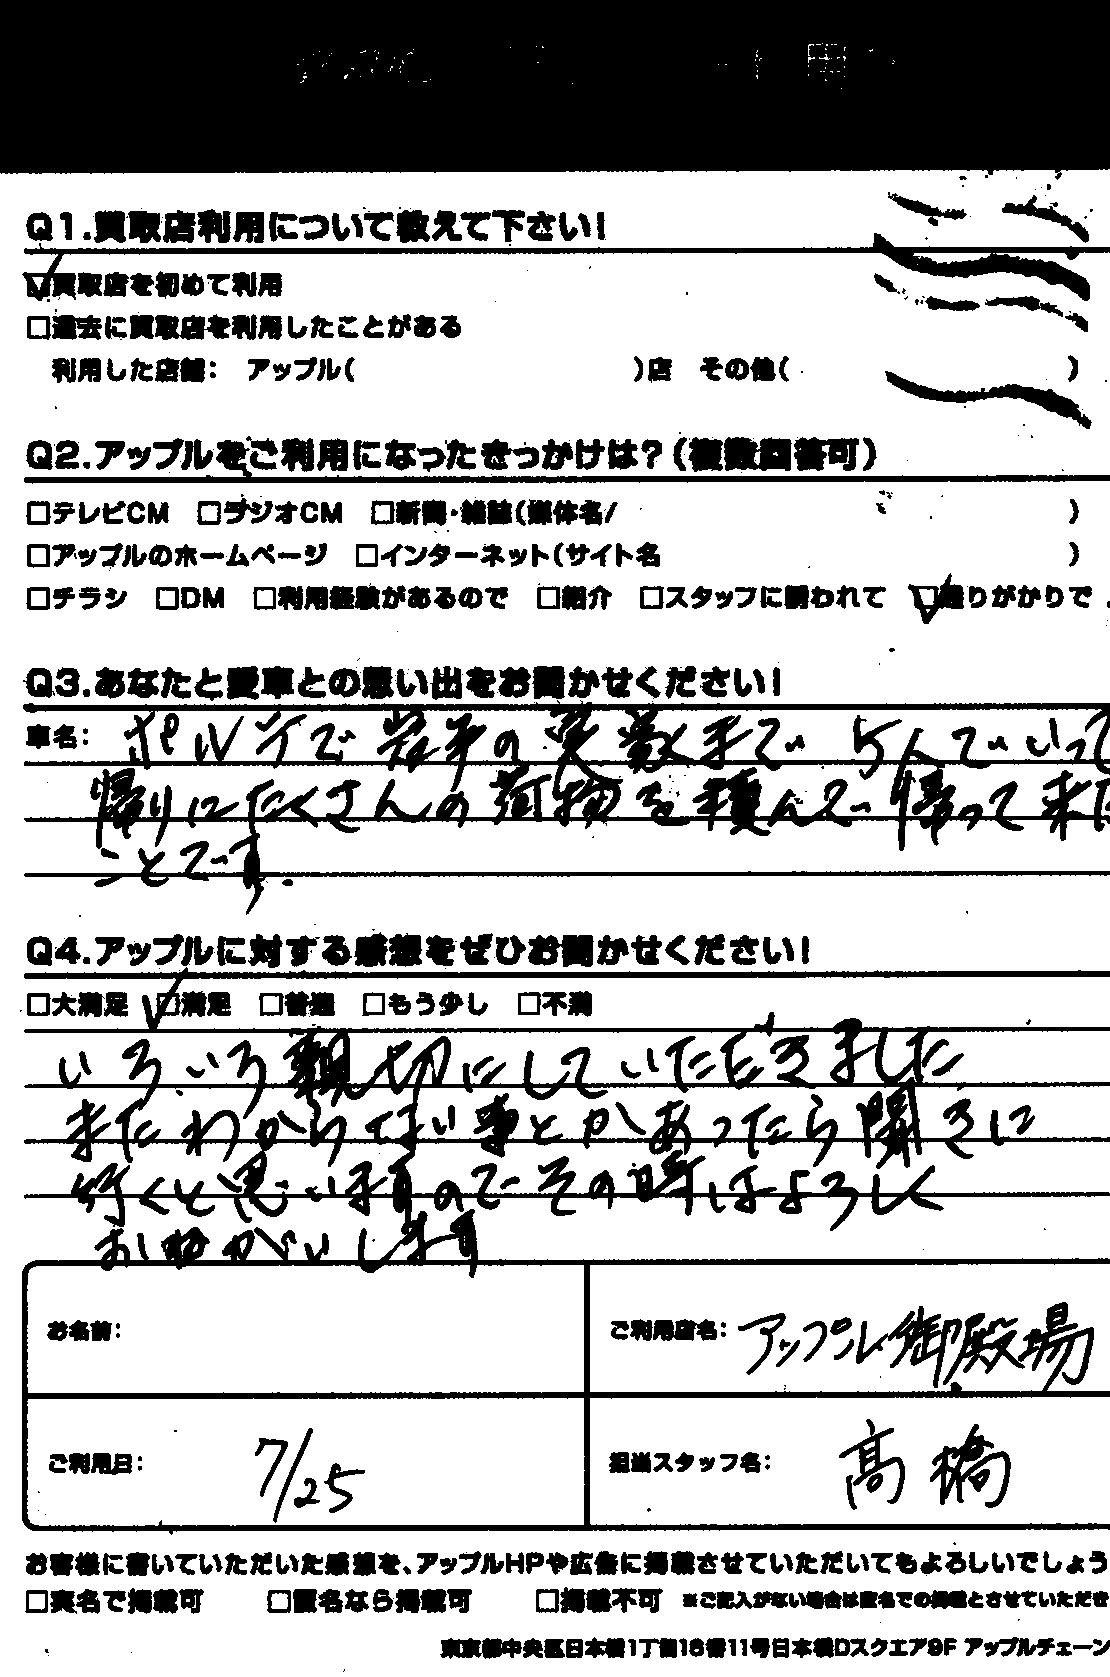 Q1.買取店利用について教えて下さい!
☑買取店を初めて利用
□過去に買取店を利用したことがある
利用した店舗: アップル( )店 その他( )
Q2.アップルをご利用になったきっかけは?(複数回答可)
□テレビCM □ラジオCM □新聞・雑誌(媒体名/ )
□アップルのホームページ □インターネット(サイト名 )
□チラシ □DM □利用経験があるので □紹介 □スタッフに誘われて ☑通りがかりで
Q3.あなたと愛車との思い出をお聞かせください!
車名: ポルテで岩手の実家まで いって
帰りにたくさんの荷物を積んで帰って来た
ことです.
Q4.アップルに対する感想をぜひお聞かせください!
□大満足 ☑満足 □普通 □もう少し □不満
いろいろ親切にしていただきました
またわからない事とかあったら聞きに
行くと思いますのでその時はよろしく
おねがいします
お名前:
ご利用店名: アップル御殿場
ご利用日: 7/25
担当スタッフ名: 高橋
お客様に書いていただいた感想を、アップルHPや広告に掲載させていただいてもよろしいでしょう
□実名で掲載可 □匿名なら掲載可 □掲載不可 ※ご記入がない場合は匿名での掲載とさせていただき
東京都中央区日本橋1丁目16番11号日本橋Dスクエア9F アップルチェーン